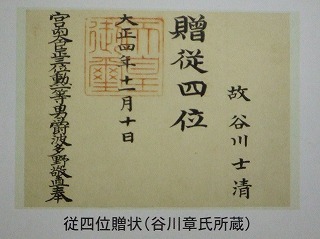 故 谷川士清
贈従四位
大正四年十一月十日
天皇御璽
宮内大臣正三位勲一等男爵波多野敬直奉
従四位贈状（谷川章氏所蔵）